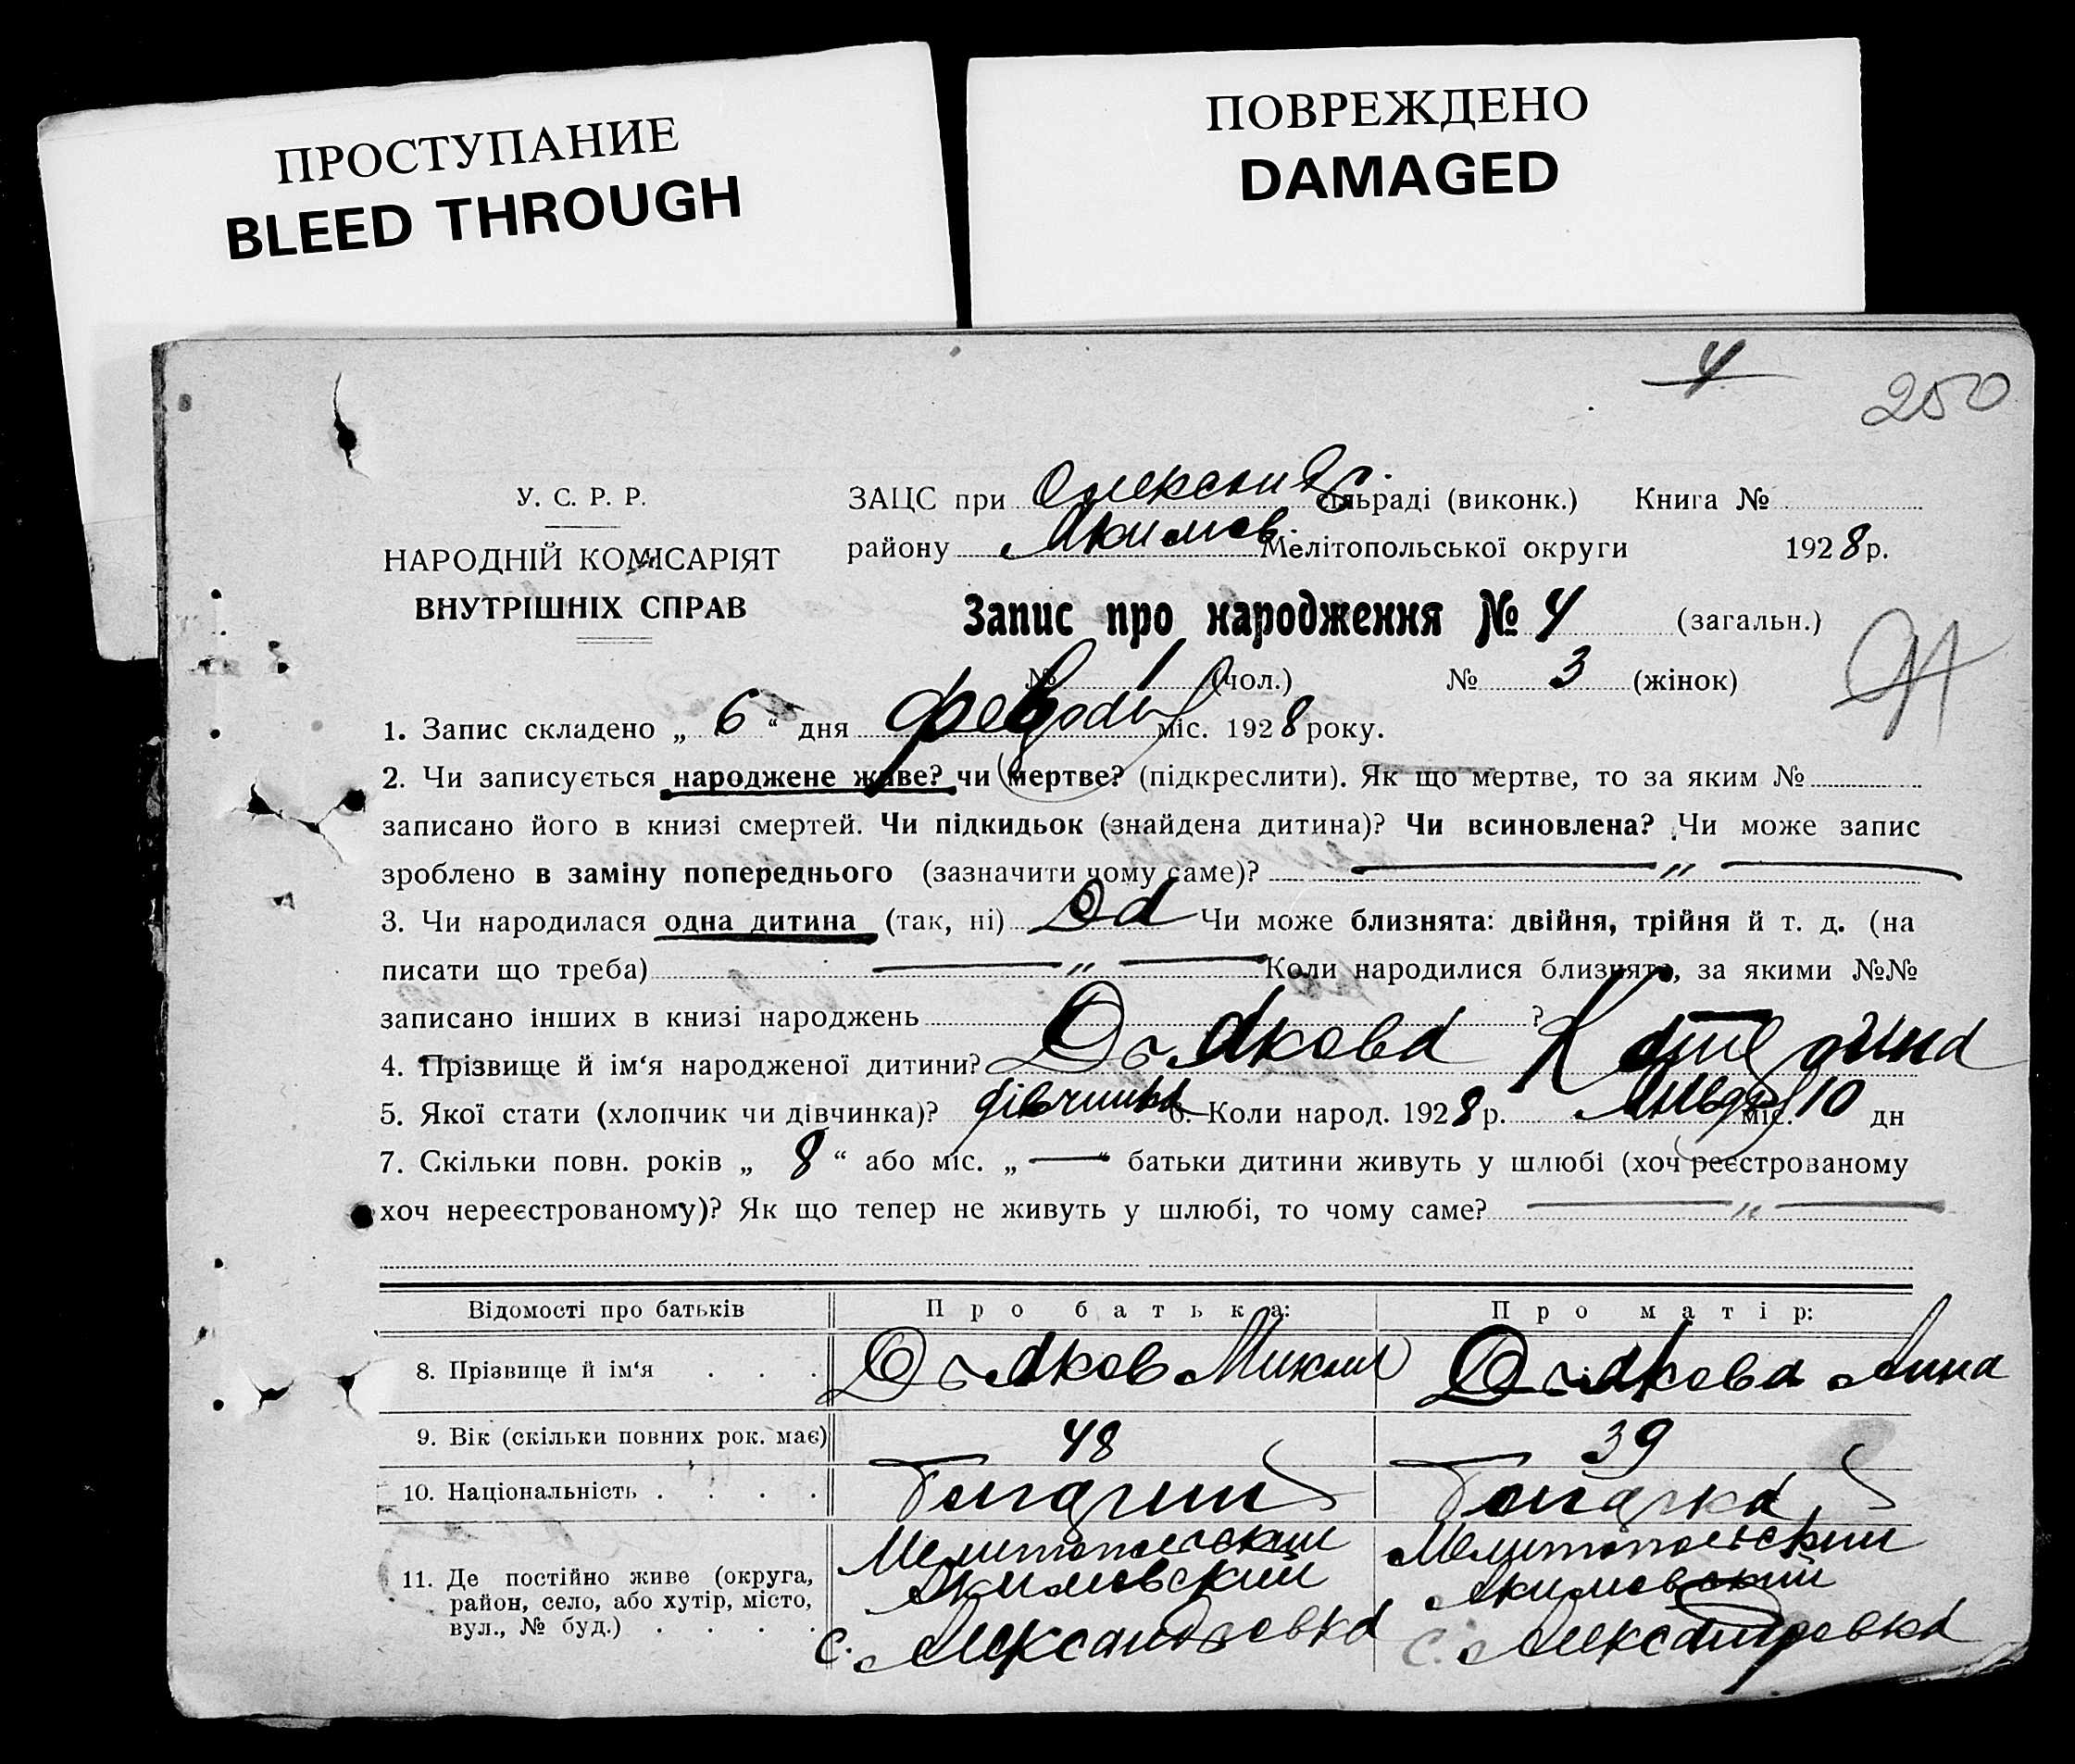 ПРОСТУПАНИЕ
BLEED THROUGH
ПОВРЕЖДЕНО
DAMAGED
4
250
У. С. Р. Р.
НАРОДНІЙ КОМІСАРІЯТ
ВНУТРІШНІХ СПРАВ
ЗАЦС при Олександр. сільраді (виконк.) Книга №
району Якимов. Мелітопольської округи 1928 р.
Запис про народження № 4 (загальн.)
№ 1 (чол.) № 3 (жінок)
1. Запис складено „ 6 “ дня міс. 1928 року.
2. Чи записується народжене живе? чи мертве? (підкреслити). Як що мертве, то за яким №
записано його в книзі смертей. Чи підкидьок (знайдена дитина)? Чи всиновлена? Чи може запис
зроблено в заміну попереднього (зазначити чому саме)? — „ —
3. Чи народилася одна дитина (так, ні) Чи може близнята: двійня, трійня й т. д. (на
писати що треба) — „ — Коли народилися близнята, за якими №№
записано інших в книзі народжень ?
4. Прізвище й ім‘я народженої дитини? Дьякова Катерина
5. Якої стати (хлопчик чи дівчинка)? дівчинка 6. Коли народ. 1928 р. міс. 10 дн
7. Скільки повн. років „ 8 “ або міс. „ — “ батьки дитини живуть у шлюбі (хоч реєстрованому
хоч нереєстрованому)? Як що тепер не живуть у шлюбі, то чому саме? — „ —
Відомості про батьків Про батька: Про матір:
8. Прізвище й ім‘я . . . Дьяков Дьякова Анна
9. Вік (скільки повних рок. має) 48 39
10. Національність . . . .
Мелитопольский Мелитопольский
11. Де постійно живе (округа, Якимовский Якимовский
район, село, або хутір, місто,
вул., № буд.) . . . . с. Александровка с. Александровка